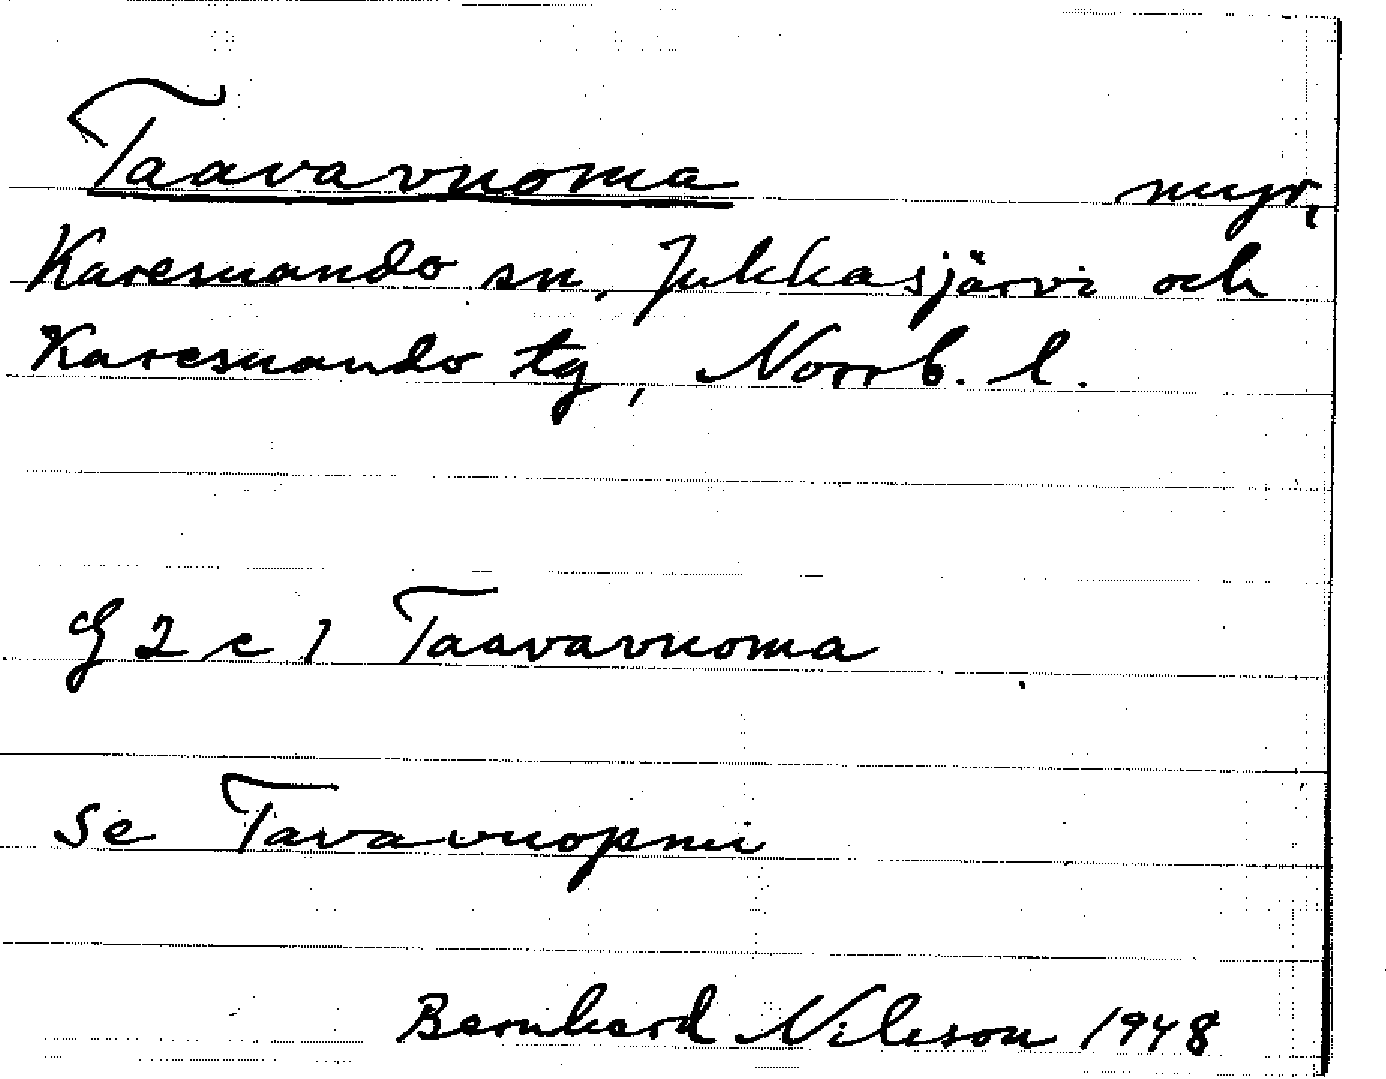 Taavavuoma myr,
Karesuando sn, Jukkasjärvi och
Karesuando tg, Norrb. l.
G 2 c 1 Taavavuoma
Se Tavavuopmi
Bernhard Nilsson 1948